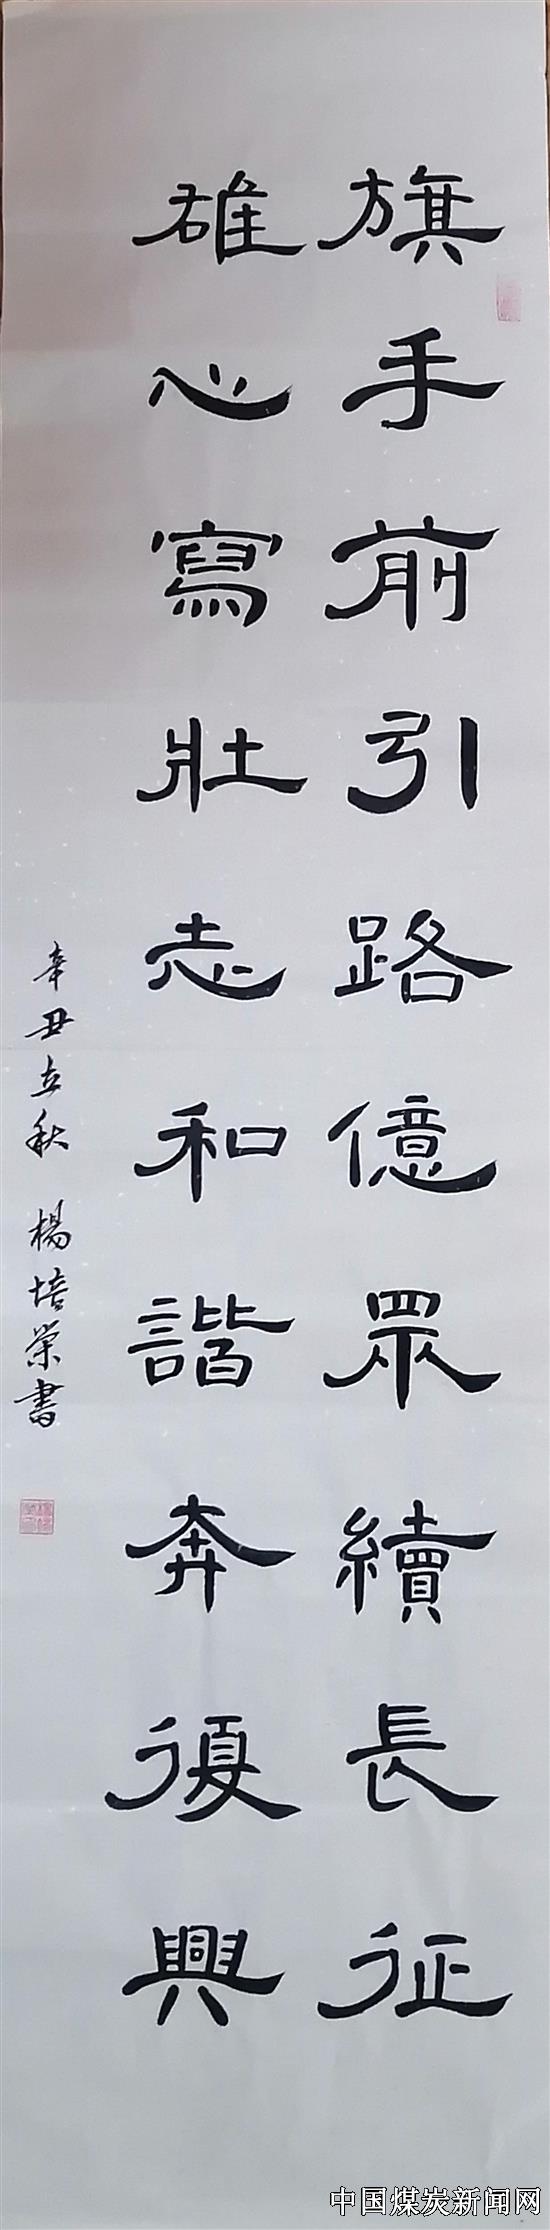 旗手前引路億眾續長征
雄心寫壯志和諧奔復興
辛丑立秋 楊培榮書
中国煤炭新闻网